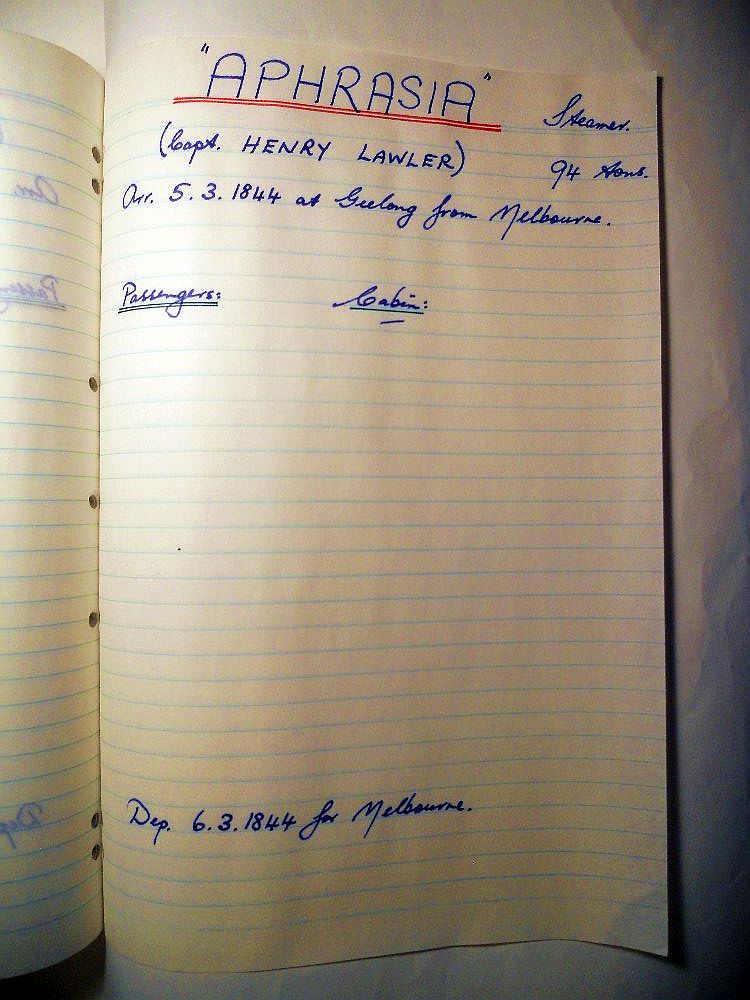 "APHRASIA" Steamer.
(Capt. HENRY LAWLER) 94 tons.
Arr. 5.3.1844 at Geelong from Melbourne.
Passengers: Cabin:
Dep. 6.3.1844 for Melbourne.